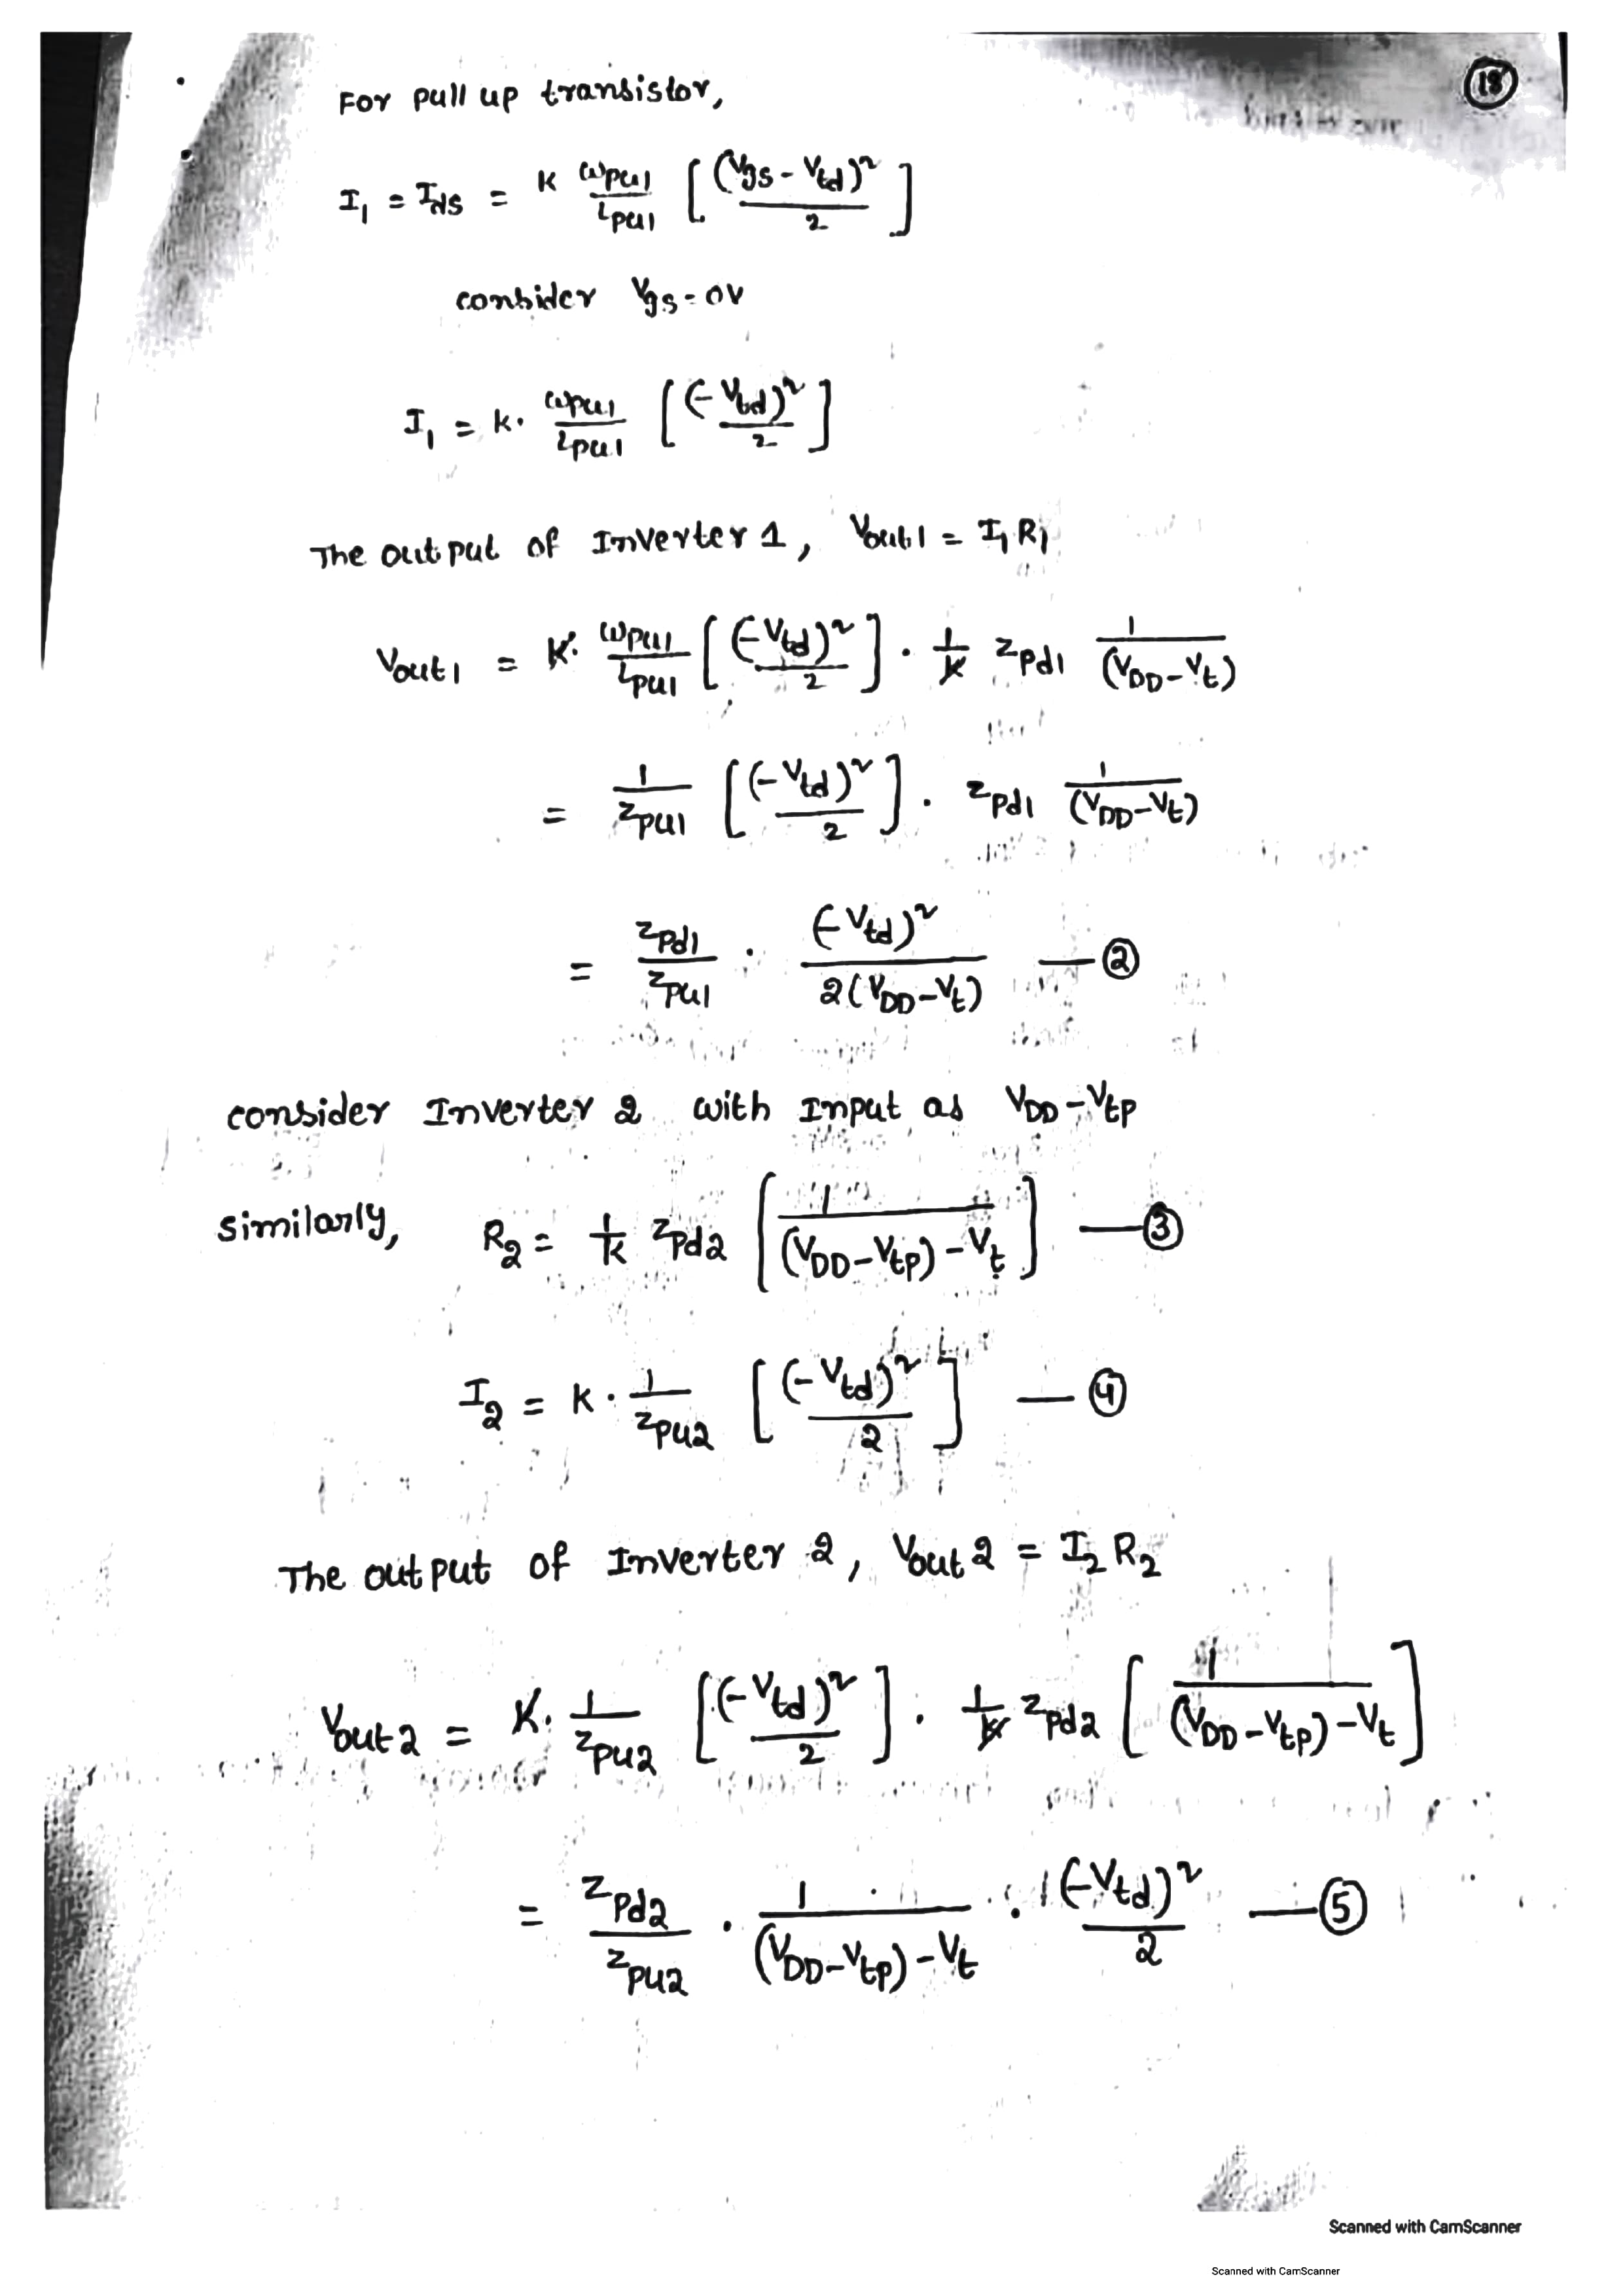 18
For pull up transistor,
I₁ = Ids = K Wpu1/Lpu1 [(Vgs - Vtd)²/2]
consider Vgs = 0V
I₁ = K. Wpu1/Lpu1 [(-Vtd)²/2]
The output of Inverter 1, Vout1 = I₁R₁
Vout1 = K. Wpu1/Lpu1 [(-Vtd)²/2] . 1/K Zpd1 1/(VDD-Vt)
= 1/Zpu1 [(-Vtd)²/2] . Zpd1 1/(VDD-Vt)
= Zpd1/Zpu1 . (-Vtd)²/2(VDD-Vt) — ②
consider Inverter 2 with Input as VDD-Vtp
Similarly, R₂ = 1/K Zpd2 [1/(VDD-Vtp)-Vt] — ③
I₂ = K . 1/Zpu2 [(-Vtd)²/2] — ④
The output of Inverter 2, Vout2 = I₂R₂
Vout2 = K. 1/Zpu2 [(-Vtd)²/2] . 1/K Zpd2 [1/(VDD-Vtp)-Vt]
= Zpd2/Zpu2 . 1/(VDD-Vtp)-Vt . (-Vtd)²/2 — ⑤
Scanned with CamScanner
Scanned with CamScanner